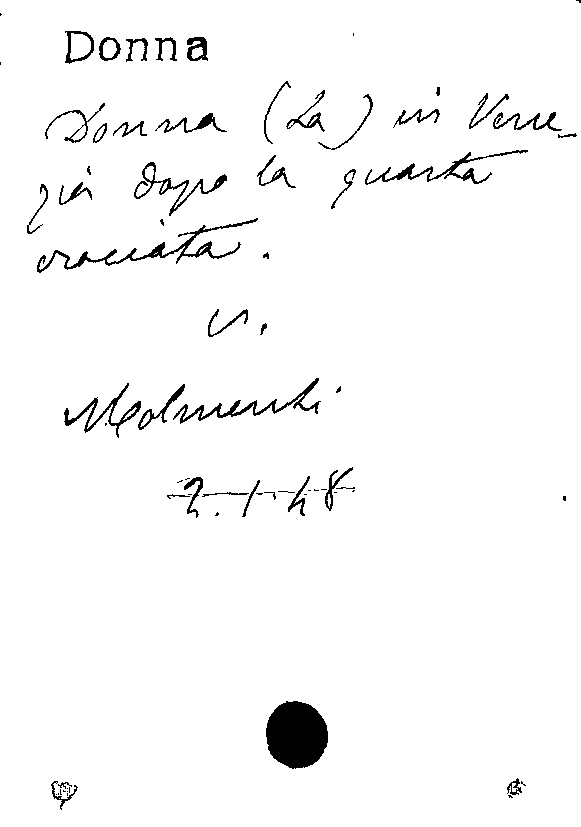 Donna
Donna (La) in Vene-
zia dopo la quarta
crociata.
v.
Molmenti
2.1.48